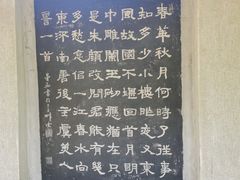 春華秋月何時了往事
知多少小樓昨夜又東
風故國不堪回首月明
中雕闌玉砌應猶在只
是朱顏改問君能有幾
多愁恰似一江春水向
東流南唐後主虞美人
一首